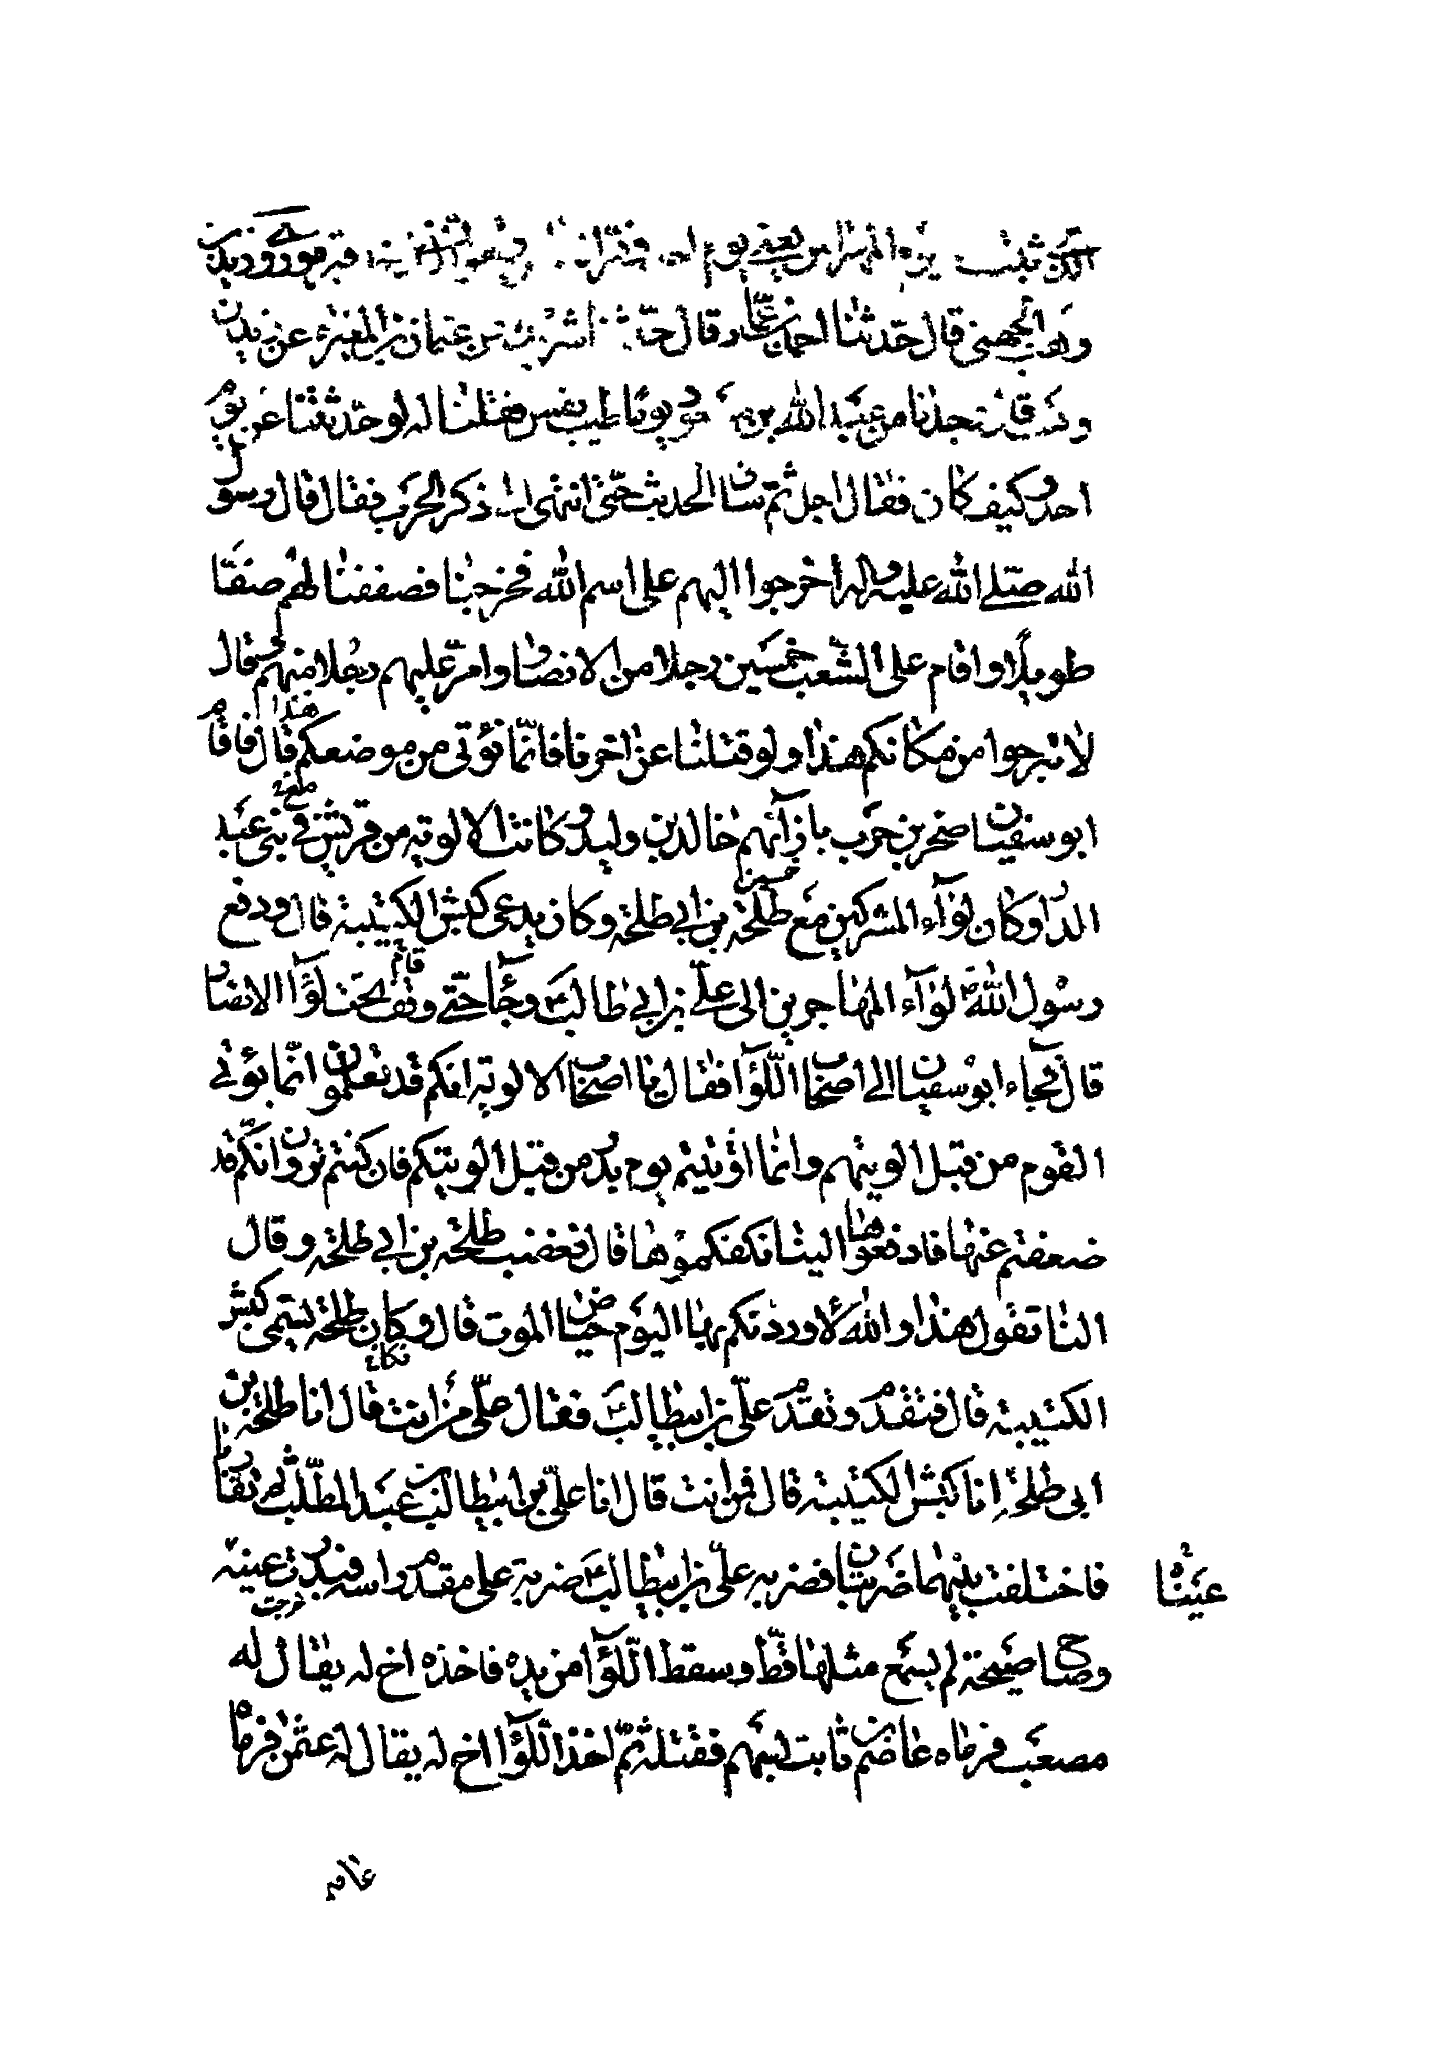 وهب الجهني قال حدثنا احمد بن عمار قال حدثنا شريك عن عثمان بن المغيرة عن زيد بن
وهب قال وجدنا من عبد الله بن مسعود يوما طيب نفس فقلنا له لو حدثتنا عن يوم
احد وكيف كان فقال اجل ثم ساق الحديث حتى انتهى الى ذكر الحرب فقال قال رسول
الله صلى الله عليه واله اخرجوا اليهم على اسم الله فخرجنا فصففنا لهم صفا
طويلا واقام على الشعب خمسين رجلا من الانصار وامر عليهم رجلا منهم وقال
لا تبرحوا من مكانكم هذا ولو قتلنا عن اخرنا فانما نؤتى من موضعكم هذا قال فاقام
ابو سفيان صخر بن حرب بازائهم خالد بن وليد وكانت الالوية من قريش في بني عبد
الدار وكان لواء المشركين مع طلحة بن ابي طلحة وكان يدعى كبش الكتيبة قال ودفع
رسول الله ص لواء المهاجرين الى علي بن ابي طالب ع وجاء حتى وقف تحت لواء الانصار
قال فجاء ابو سفيان الى اصحاب اللواء فقال يا اصحاب الالوية انكم قد تعلمون انما يؤتى
القوم من قبل الويتهم وانما اؤتيتم يوم بدر من قبل الويتكم فان كنتم ترون انكم قد
ضعفتم عنها فادفعوها الينا نكفكموها قال فغضب طلحة بن ابي طلحة وقال
النا تقول هذا والله لاوردنكم بها اليوم حياض الموت قال وكان طلحة يسمى كبش
الكتيبة قال فتقدم وتقدم علي بن ابيطالب ع فقال علي من انت قال انا طلحة بن
ابي طلحة انا كبش الكتيبة قال فمن انت قال انا علي بن ابيطالب بن عبد المطلب ثم تقاربا
فاختلفت بينهما ضربتان فضربه علي بن ابيطالب ع ضربة على مقدم راسه فبدرت عينه
عيناه
وصاح صيحة لم يسمع مثلها قط وسقط اللواء من يده فاخذه اخ له يقال له
مصعب فرماه عاصم بن ثابت بسهم فقتله ثم اخذ اللواء اخ له يقال له عثمن فرماه